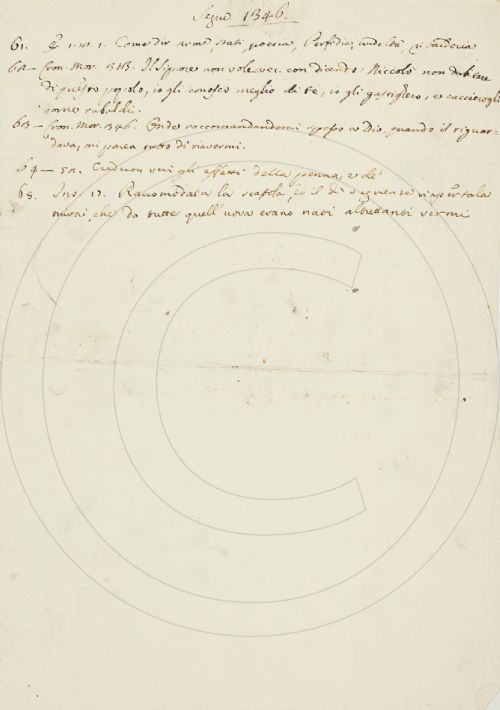 Segue 1346.
61. E 1. 10. 1. Come dir arme stati, poesia, Perfidia, crudeltà,
62 — Cron. Mor. 313. Il Signore non vole, dicendo: Niccolò non dubitare
di questo popolo, io gli conosco meglio di te, io gli gastigherò, e
come rubaldi.
63 — Cron. Mor. 346. Onde raccomandandomi spesso a Dio, quando il riguar-
dava, mi parea tutto di riavermi.
64 — 52. veri gli effetti della penna, e de
65. Ins. 17. Racomodata la scatola, ed il dì seguente riapertala
mirai, che da tutte quell' uova erano nati altrettanti vermi